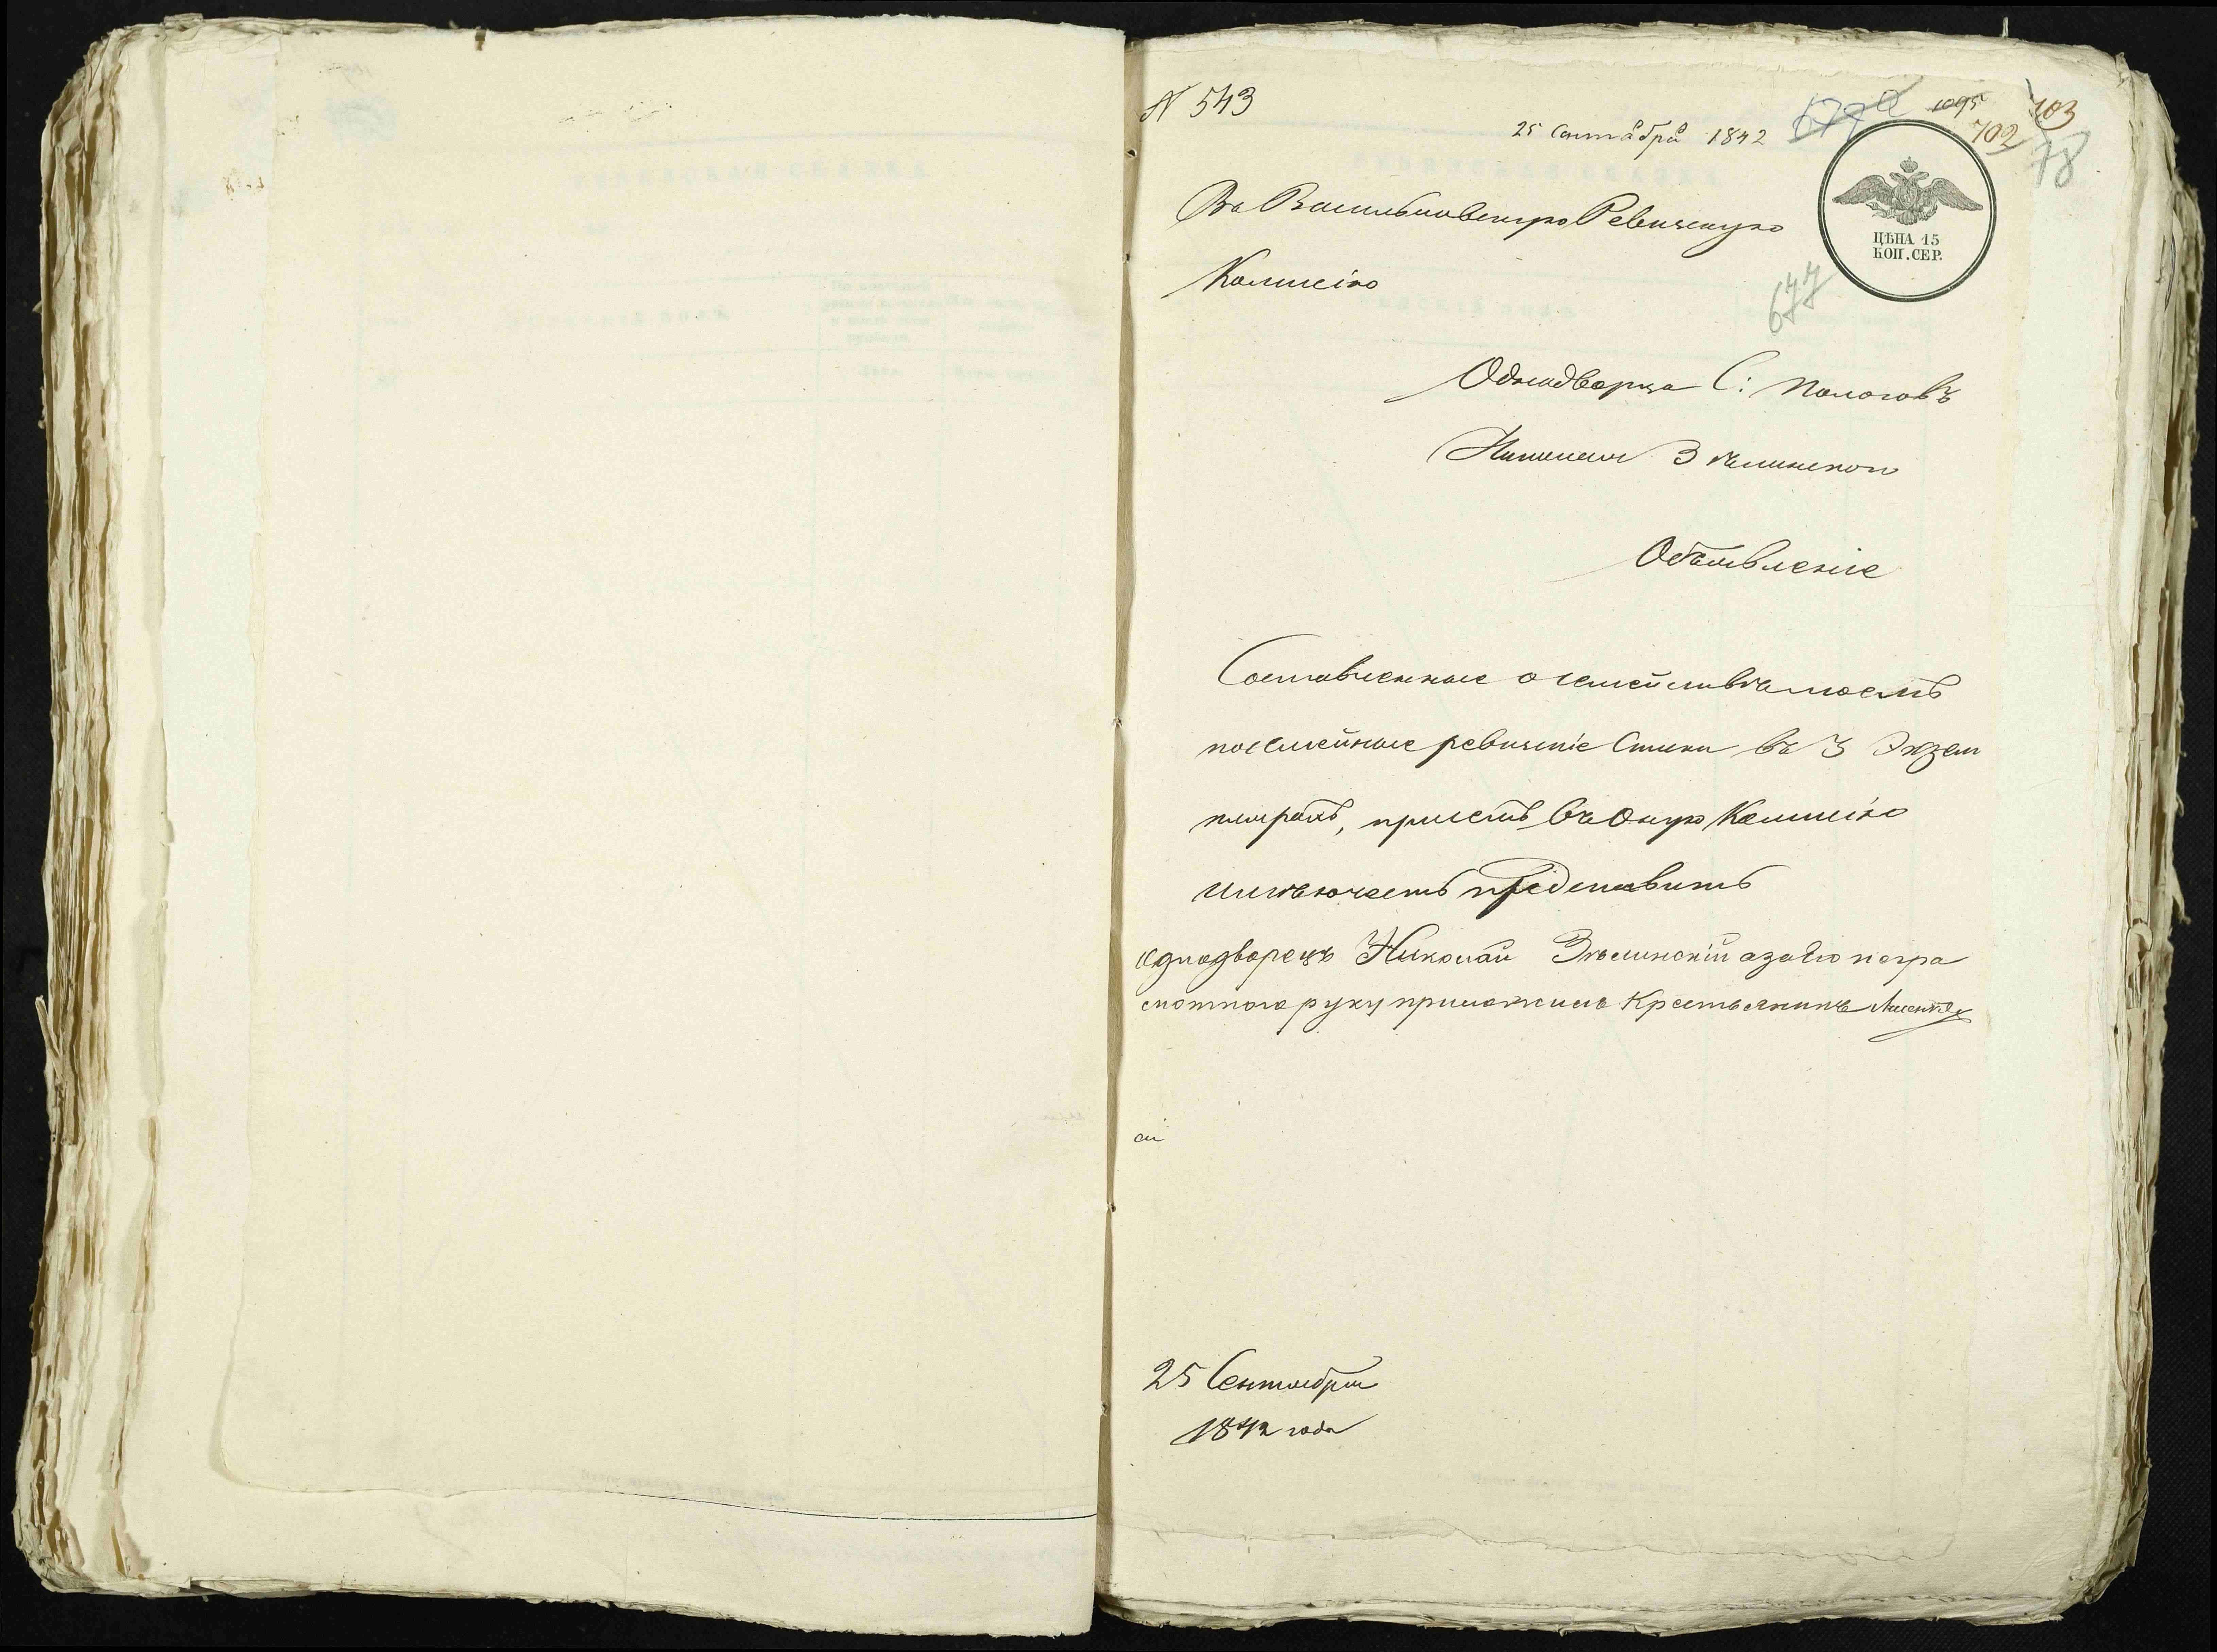 N 543
25 Сентября 1842
1095
703
702
78
ЦѢНА 15
КОП. СЕР.
677
Въ Васильковскую Ревизскую
Комисію
Однодворца С: Пологовъ
Николая Зѣлинского
Объявленіе
Составленные о семействѣ моемъ
посемейные ревизскіе Списки въ 3 Экзем
плярахъ, при семъ въ Оную Комисію
имѣю честь представить
однодворецъ Николай Зѣлинскій а за Его негра
мотного руку приложилъ Крестьянинъ
25 Сентября
1842 года